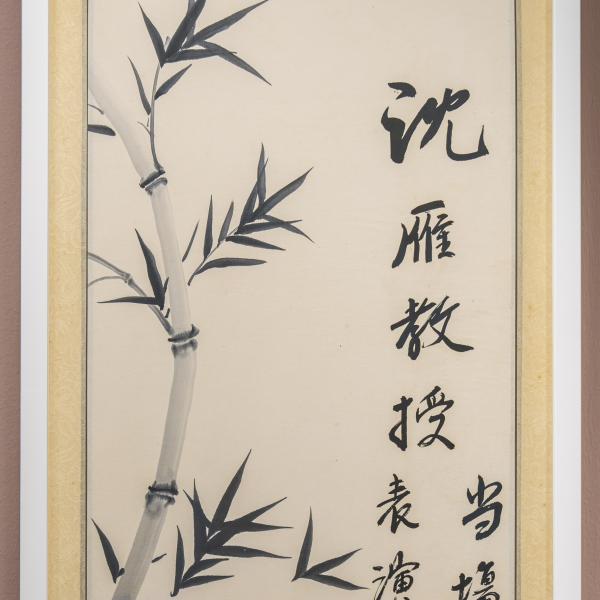 沈雁教授
当
表演